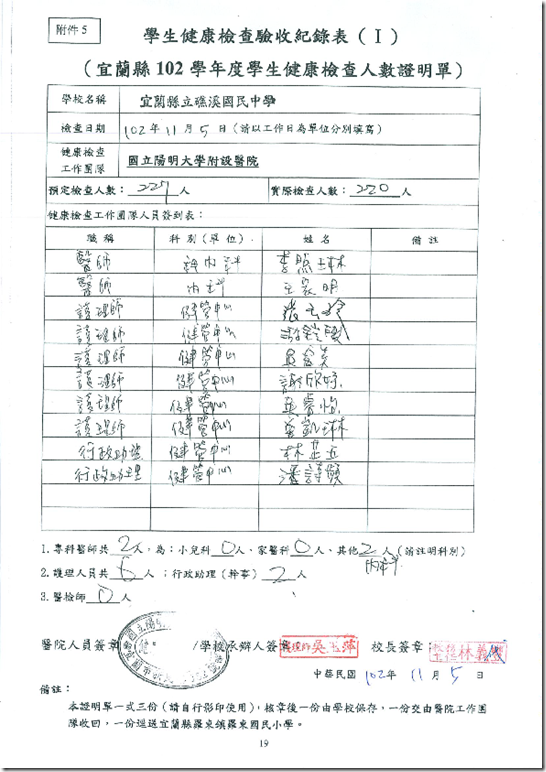 附件5
學生健康檢查驗收紀錄表（I）
（宜蘭縣102學年度學生健康檢查人數證明單）
學校名稱 宜蘭縣立礁溪國民中學
檢查日期 102年11月5日（請以工作日為單位分別填寫）
健康檢查工作團隊 國立陽明大學附設醫院
預定檢查人數：227人 實際檢查人數：220人
健康檢查工作團隊人員簽到表：
職稱 科別（單位）. 姓名 備註
醫師
醫師
護理師 健管中心
護理師 健管中心
護理師 健管中心
護理師 健管中心 謝欣妤
護理師 健管中心
護理師 健管中心
行政助理 健管中心
行政助理 健管中心
1.專科醫師共2人，為：小兒科0人、家醫科0人、其他2人（請註明科別）
內科
2.護理人員共6人；行政助理（幹事）2人
3.醫檢師0人
醫院人員簽章 /學校承辦人簽章 校長簽章
中華民國102年11月5日
備註：
本證明單一式三份（請自行影印使用），核章後一份由學校保存，一份交由醫院工作團
隊收回，一份逕送宜蘭縣羅東鎮羅東國民小學。
19